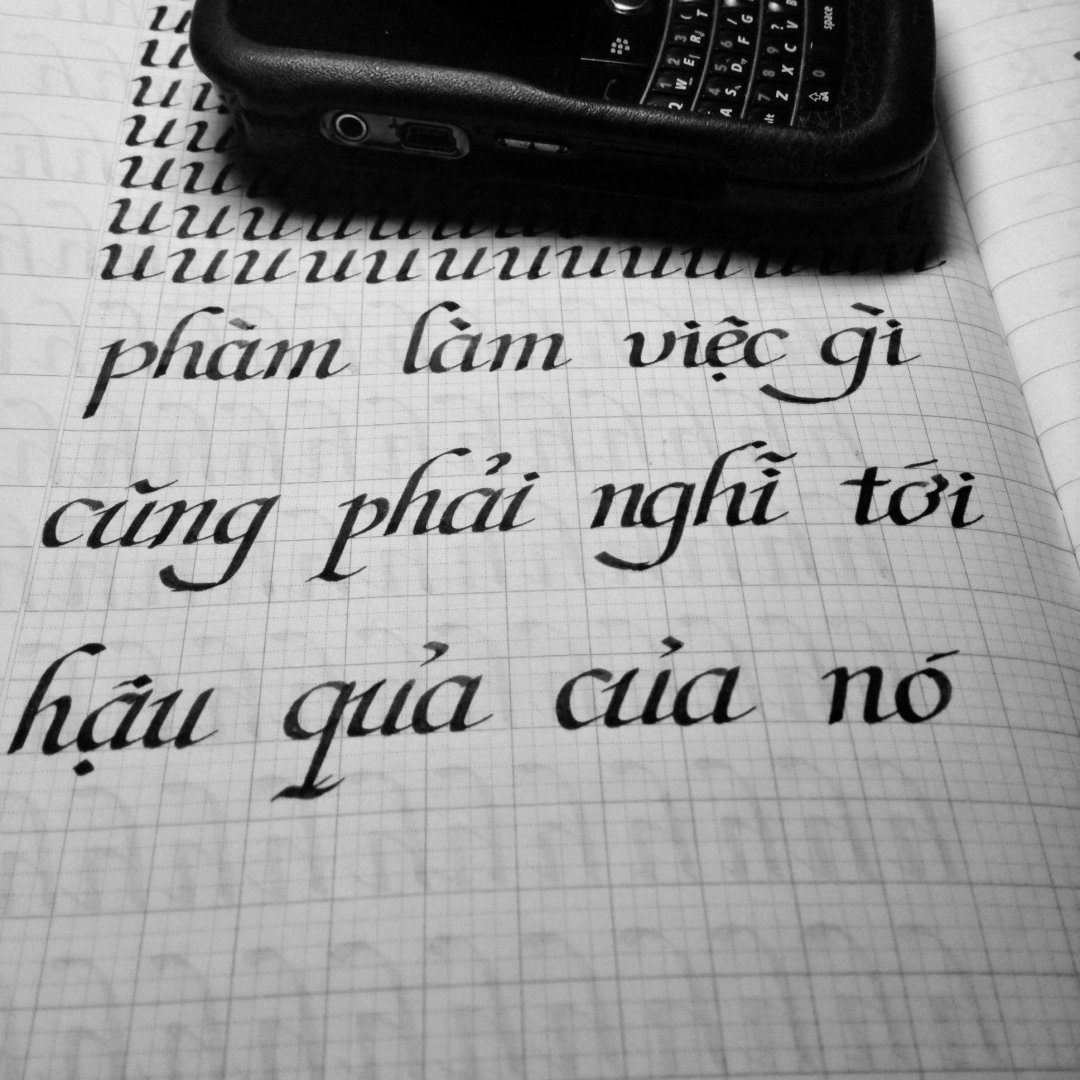 u
u
u u
u u
u u u
u u u u u u u u
u u u u u u u u u u u u u
phàm làm việc gì
cũng phải nghĩ tới
hậu quả của nó